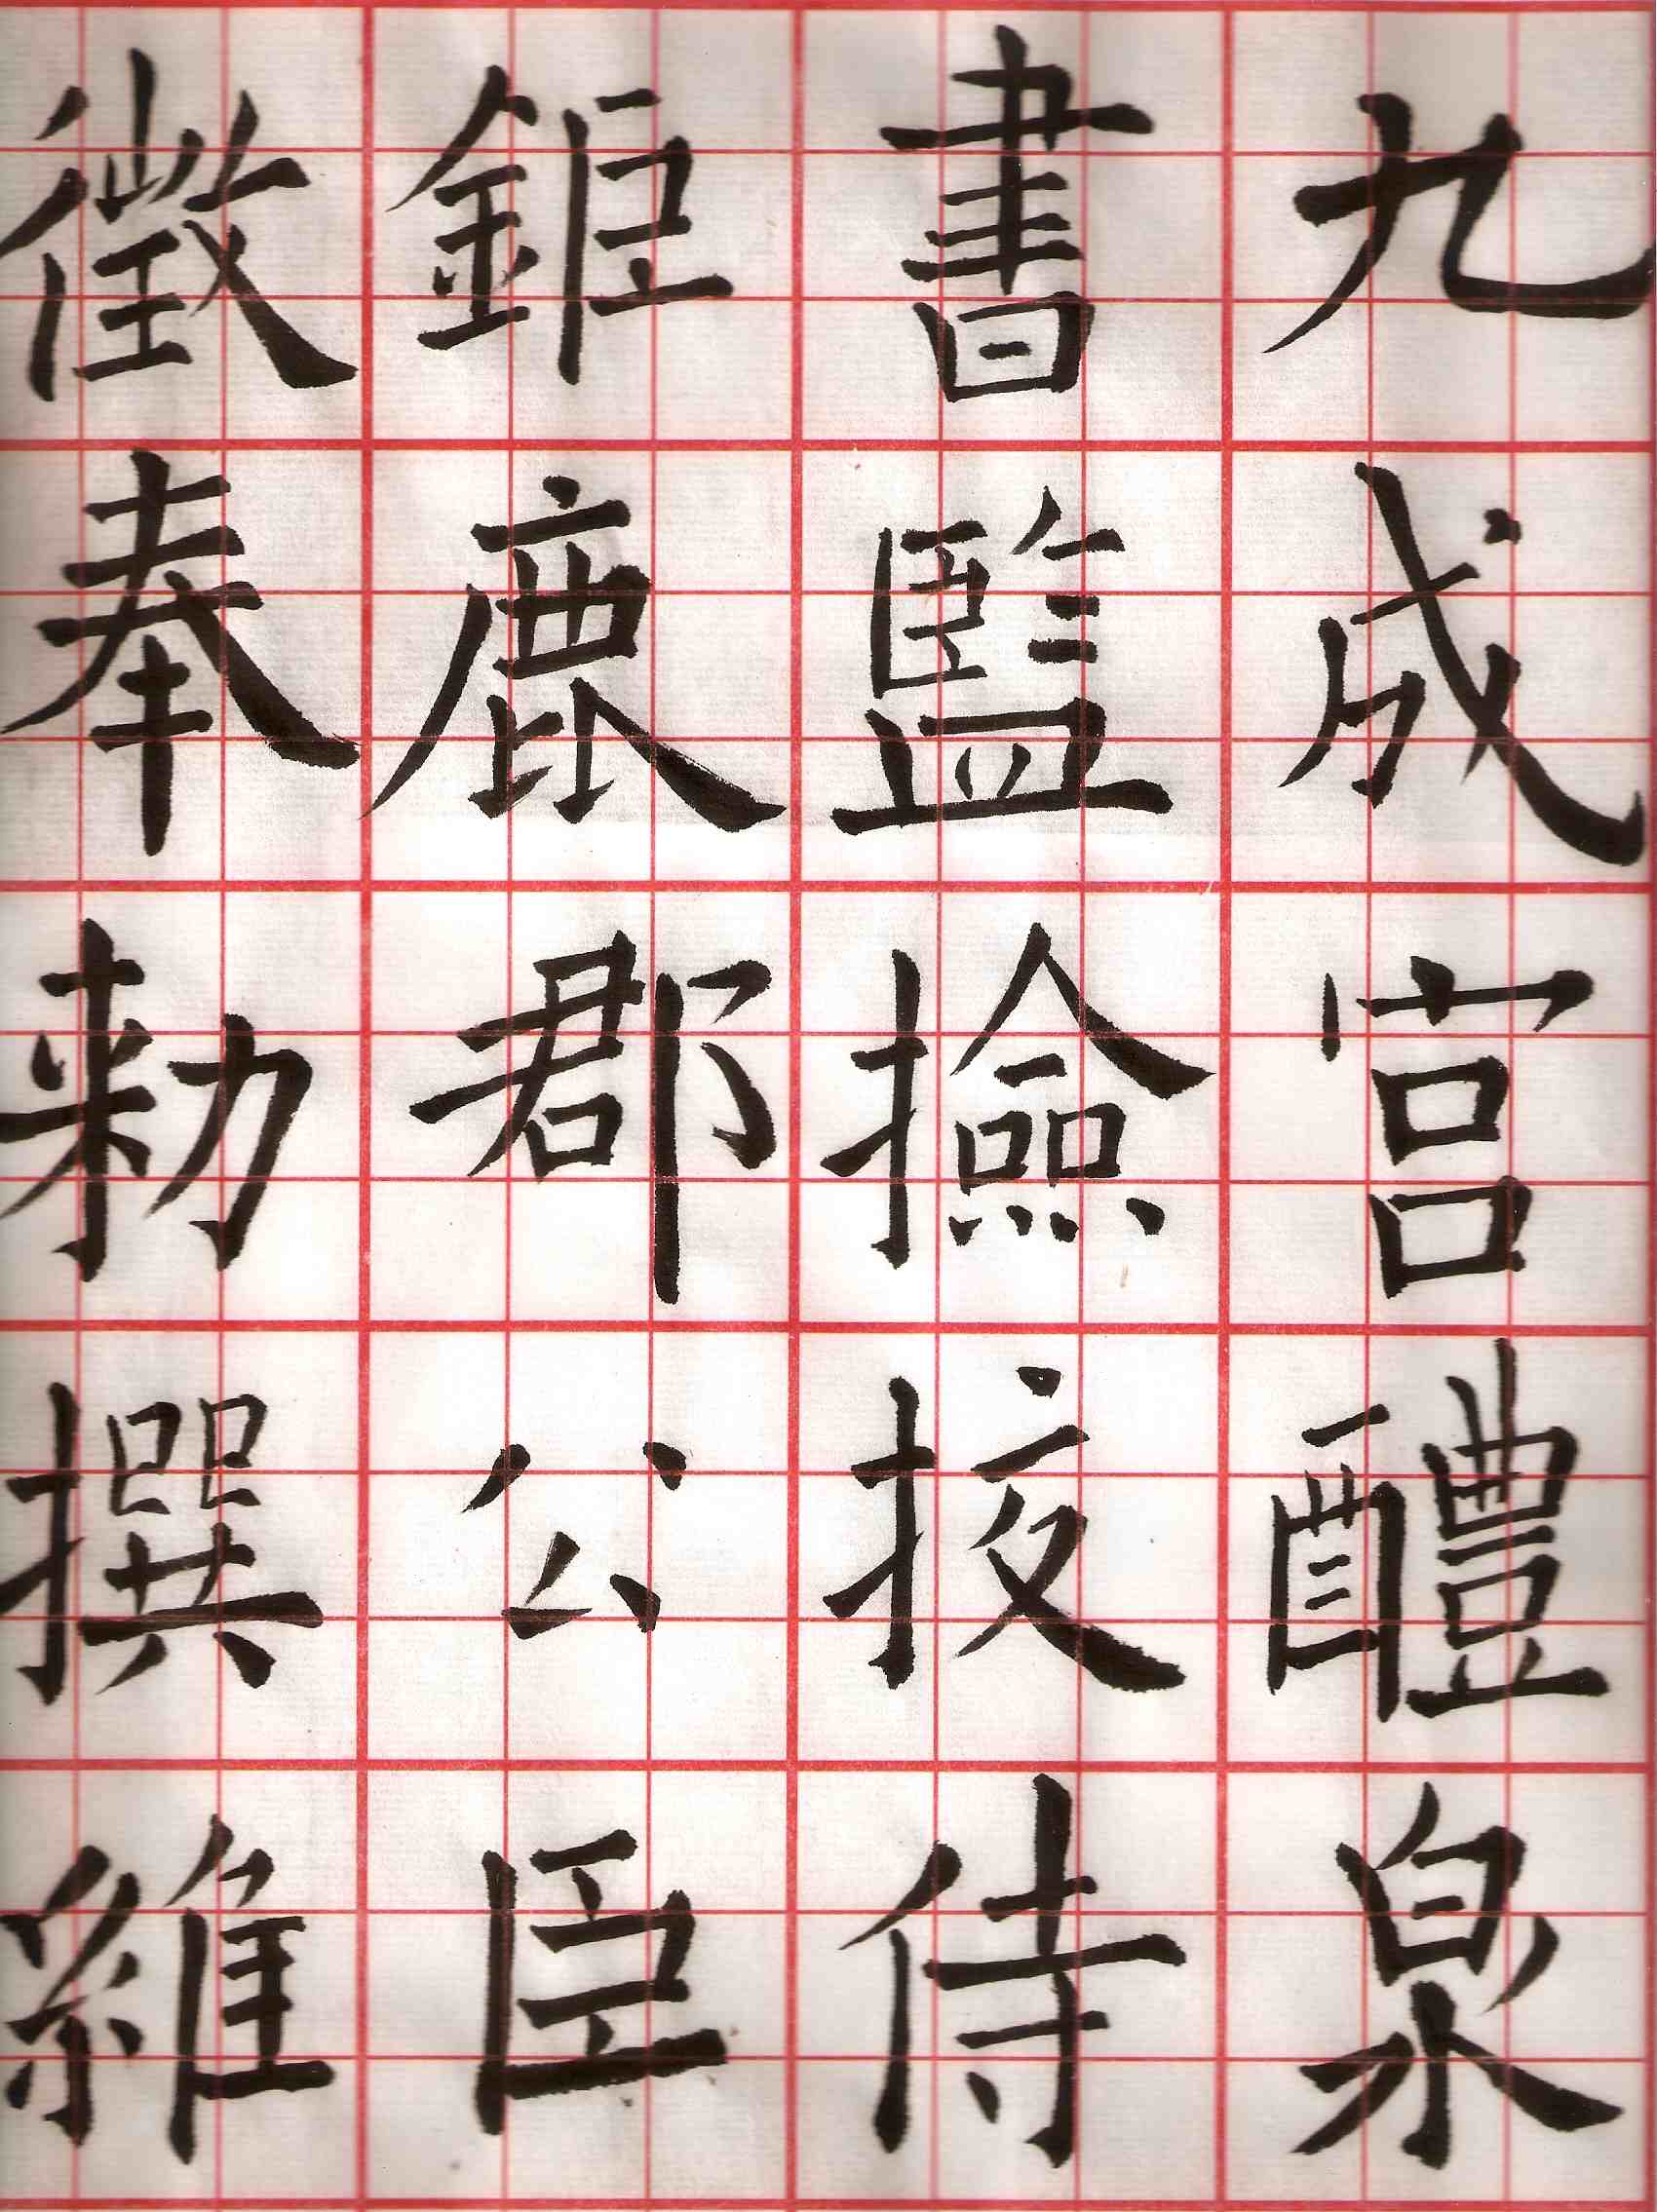 九成宫醴泉
書監撿挍侍
鉅鹿郡公臣
徵奉勑撰維